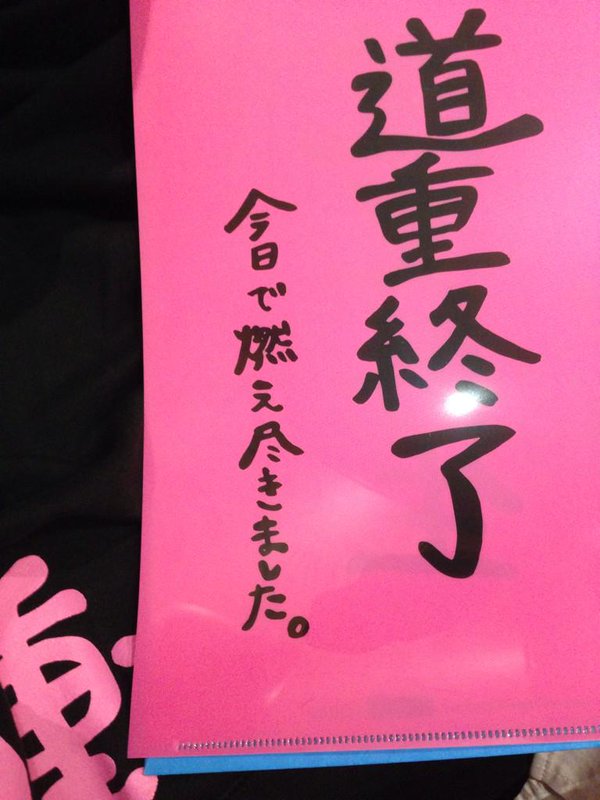 道重終了
今日で燃え尽きました。
重